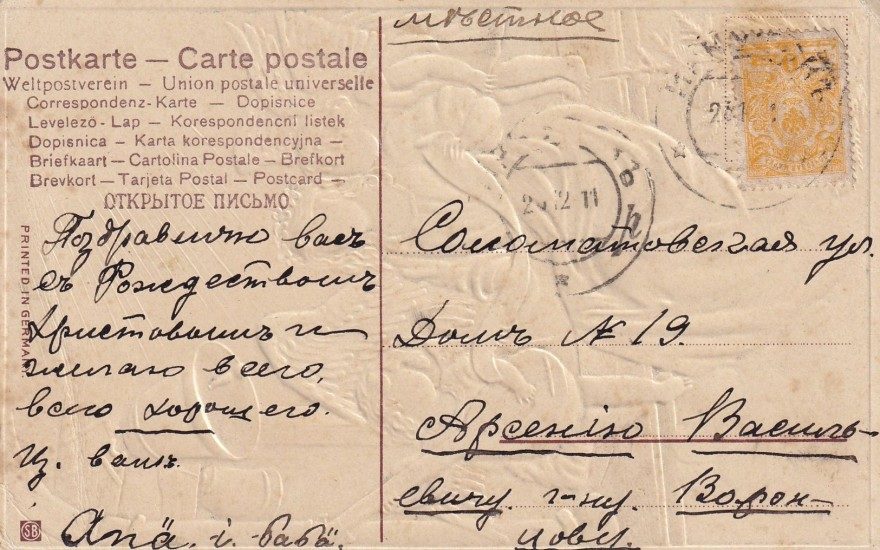 мѣстное
Postkarte — Carte postale
Weltpostverein — Union postale universelle
Correspondenz-Karte — Dopisnice
Levelező-Lap — Korespondencní listek
Dopisnica — Karta korespondencyjna —
Briefkaart — Cartolina Postale — Brefkort
Brevkort — Tarjeta Postal — Postcard —
ОТКРЫТОЕ ПИСЬМО
PRINTED IN GERMANY.
Поздравляю васъ
съ Рождествомъ
Христовымъ и
желаю всего,
всего хорошего.
SB
12 11
Соломатовская ул.
Домъ № 19.
Арсенію Василь-
евичу г-ну. Ворон-
цову.